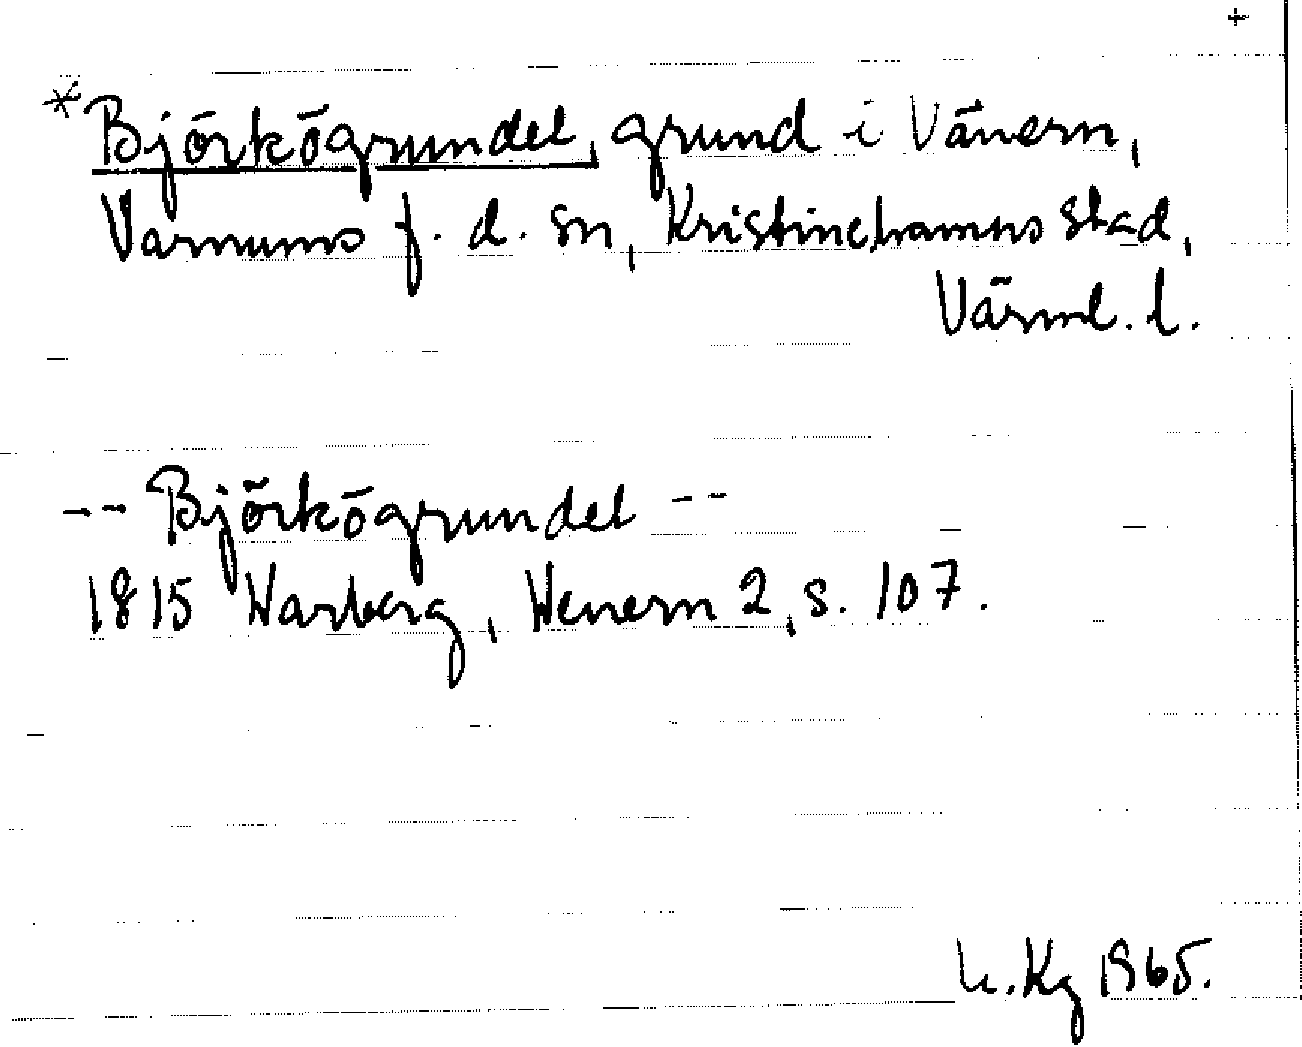 +
*Björkögrundet, grund i Vänern,
Varnums f. d. sn, Kristinehamns stad,
Värml. l.
-- Björkögrundet --
1815 Warberg, Wenern 2, s. 107.
Kg 1965.